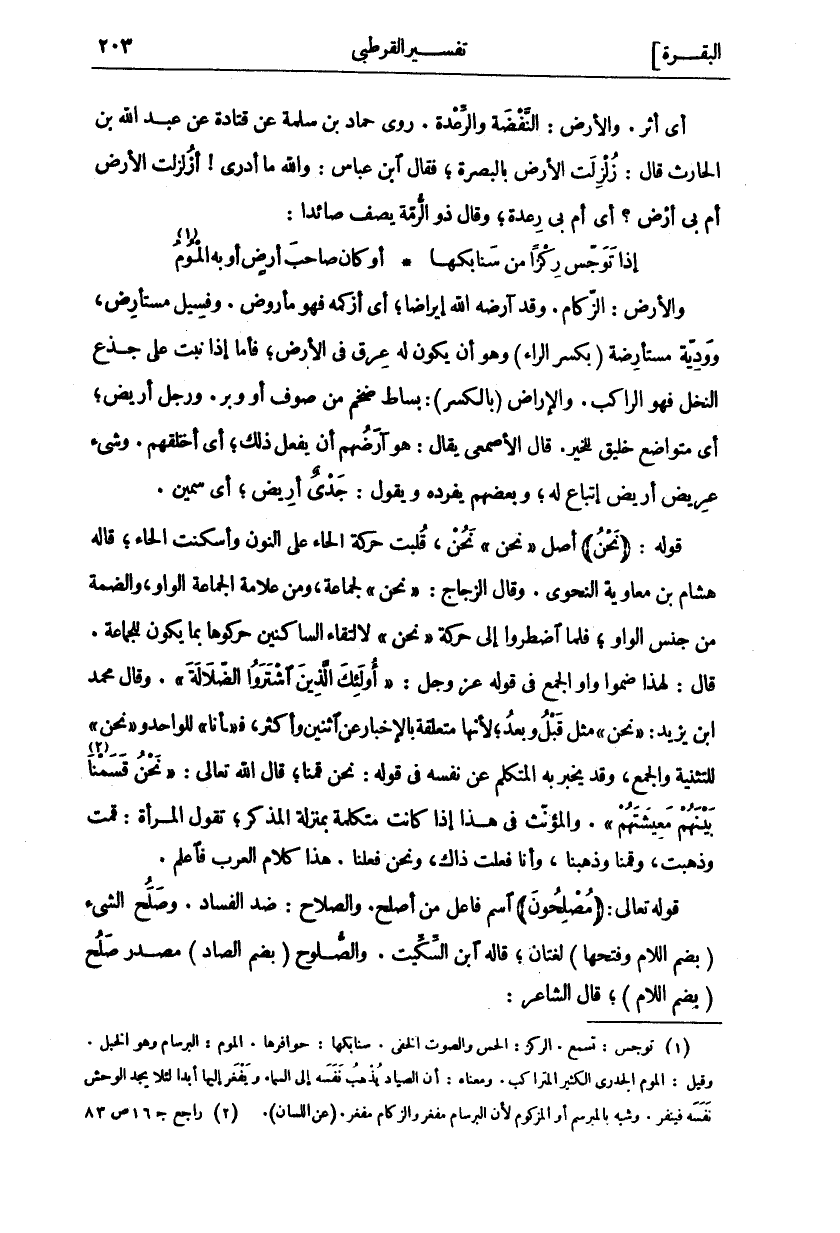 البقـــرة] تفســـير القرطبى ٢٠٣
أى أثر . والأرض : النَّفْضَة والرِّعْدة . روى حماد بن سلمة عن قتادة عن عبـد الله بن
الحارث قال : زُلْزِلَت الأرض بالبصرة ؛ فقال آبن عباس : والله ما أدرى ! أزُلزلت الأرض
أم بى أرْض ؟ أى أم بى رِعدة ؛ وقال ذو الرُّمّة يصف صائدا :
إذا تَوَجّس رِكْزًا من سَنابكهـا * أو كان صاحبَ أرضٍ أو به الْمُومُ (١)
والأرض : الزّكام . وقد آرضه الله إيراضا ؛ أى أزكمه فهو مأروض . وفسِيل مستأرِض ،
ووَدِيّة مستأرِضة ( بكسر الراء ) وهو أن يكون له عِرق فى الأرض ؛ فأما إذا نبت على جـذع
النخل فهو الراكب . والإراض (بالكسر) : بساط ضخم من صوف أو وبر . ورجل أريض ؛
أى متواضع خليق للخير . قال الأصمعى يقال : هو آرَضُهم أن يفعل ذلك ؛ أى أخلقهم . وشىء
عريض أريض إتباع له ؛ وبعضهم يفرده ويقول : جَدْىٌ أرِيض ؛ أى سمين .
قوله : ﴿نَحْنُ﴾ أصل «نحن» نَحُنْ ، قُلبت حركة الحاء على النون وأسكنت الحاء ؛ قاله
هشام بن معاوية النحوى . وقال الزجاج : «نحن» لجماعة ، ومن علامة الجماعة الواو ، والضمة
من جنس الواو ؛ فلما آضطروا إلى حركة «نحن» لالتقاء الساكنين حركوها بما يكون للجماعة .
قال : لهذا ضموا واو الجمع فى قوله عز وجل : « أُولَئِكَ الَّذِينَ آشْتَرَوُا الضَّلَالَةَ » . وقال محمد
ابن يزيد : «نحن» مثل قَبْلُ وبعدُ ؛ لأنها متعلقة بالإخبار عن آثنين وأكثر ، فـ«ـأنا» للواحد و «نحن»
للتثنية والجمع ، وقد يخبر به المتكلم عن نفسه فى قوله : نحن قمنا ؛ قال الله تعالى : « نَحْنُ قَسَمْنَا (٢)
بَيْنَهُمْ مَعِيشَتَهُمْ » . والمؤنّث فى هـذا إذا كانت متكلمة بمنزلة المذكر ؛ تقول المـرأة : قمت
وذهبت ، وقمنا وذهبنا ، وأنا فعلت ذاك ، ونحن فعلنا . هذا كلام العرب فآعلم .
قوله تعالى : ﴿مُصْلِحُونَ﴾ آسم فاعل من أصلح . والصلاح : ضد الفساد . وصَلُح الشىء
( بضم اللام وفتحها ) لغتان ؛ قاله آبن السِّكِّيت . والصُّلوح ( بضم الصاد ) مصـدر صَلُح
( بضم اللام ) ؛ قال الشاعر :
(١) توجس : تسمع . الركز : الحس والصوت الخفى . سنابكها : حوافرها . الموم : البرسام وهو الخبل .
وقيل : الموم الجدرى الكثير المتراكب . ومعناه : أن الصياد يُذهب نَفَسَه إلى السماء ويَفْغَر إليها أبدا لئلا يجد الوحش
نَفَسَه فينفر . وشبه بالمبرسم أو المزكوم لأن البرسام مفغر والزكام مفغر . (عن اللسان) . (٢) راجع جـ ١٦ ص ٨٣